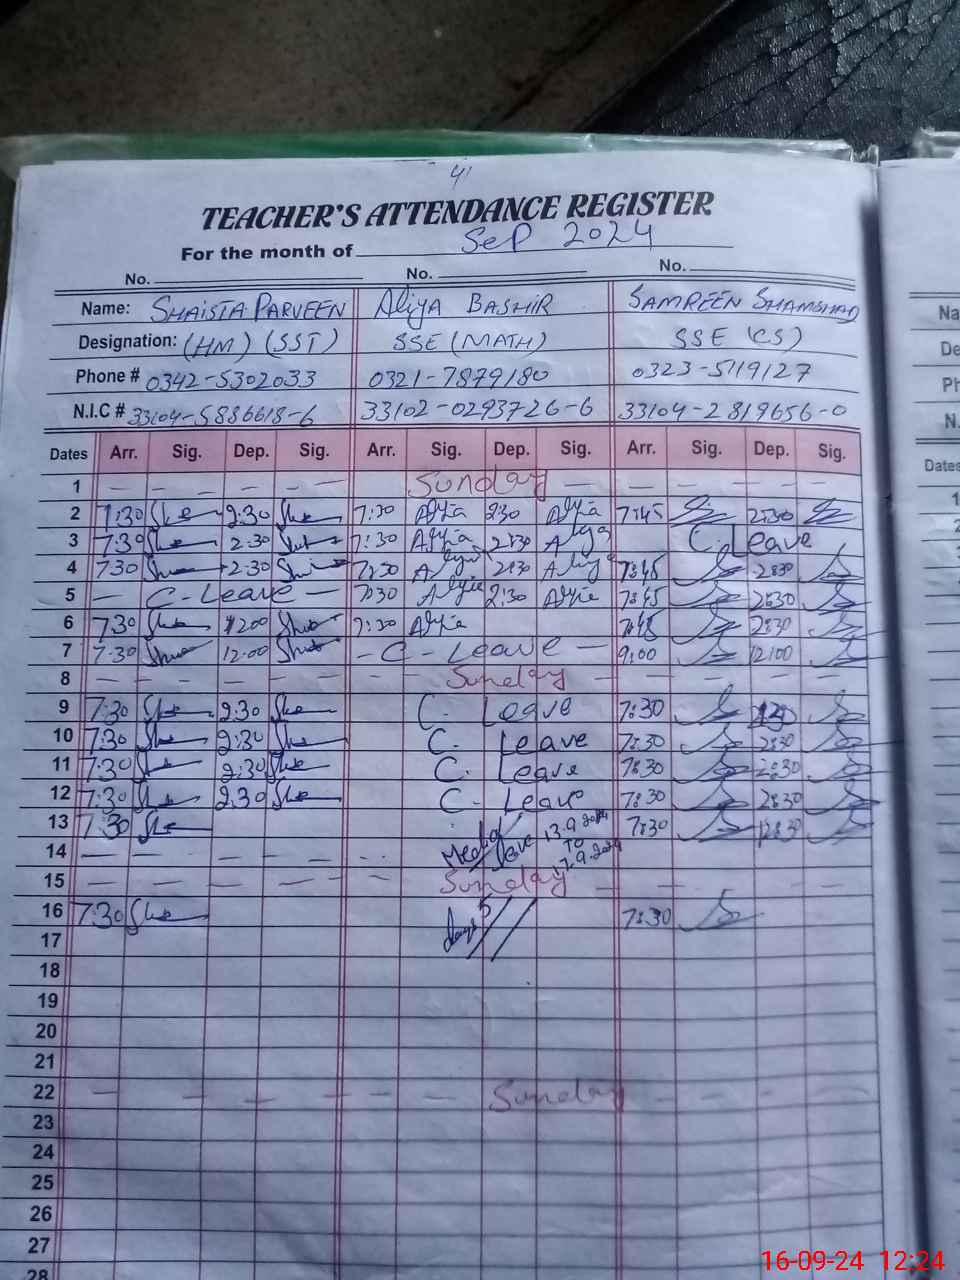 41
TEACHER'S ATTENDANCE REGISTER
For the month of Sep 2024
No. No. No.
Name: SHAISTA PARVEEN Aliya BASHIR SAMREEN SHAMSHAD
Designation: (HM) (SST) SSE (MATH) SSE (CS)
Phone # 0342-5302033 0321-7879180 0323-5119127
N.I.C # 33104-5886618-6 33102-0293726-6 33104-2819656-0
Dates Arr. Sig. Dep. Sig. Arr. Sig. Dep. Sig. Arr. Sig. Dep. Sig.
1 Sunday
2 7:30 2:30 7:30 2:30 7:45 2:30
3 7:30 2:30 7:30 2:30 C. Leave
4 7:30 2:30 7:30 2:30 7:45 2:30
5 - C-Leave - 7:30 2:30 7:45 2:30
6 7:30 1200 7:30 7:45 2:30
7 7:30 12:00 - C - Leave - 9:00 12:00
8 Sunday
9 7:30 2:30 C. Leave 7:30
10 7:30 2:30 C. Leave 7:30 2:30
11 7:30 2:30 C. Leave 7:30 2:30
12 7:30 2:30 C- Leave 7:30 2:30
13 7:30 Medical Leave 13.9.2024 7:30 12:30
14 TO 17.9.2024
15 Sunday
16 7:30 days 5 7:30
17
18
19
20
21
22 Sunday
23
24
25
26
27
28
Na
De
Ph
N.
Dates
16-09-24 12:24